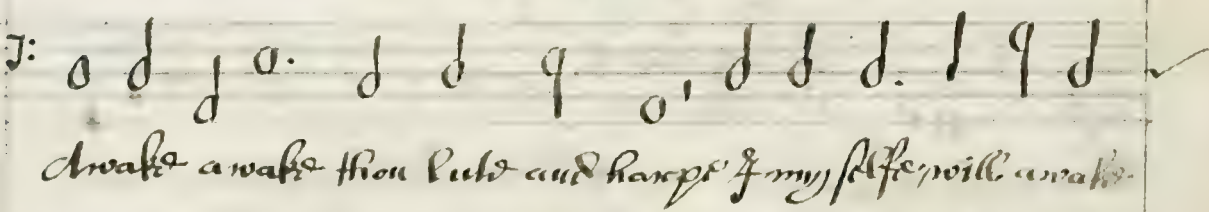 Awake awake thou lute and harpe I my selfe, will awake